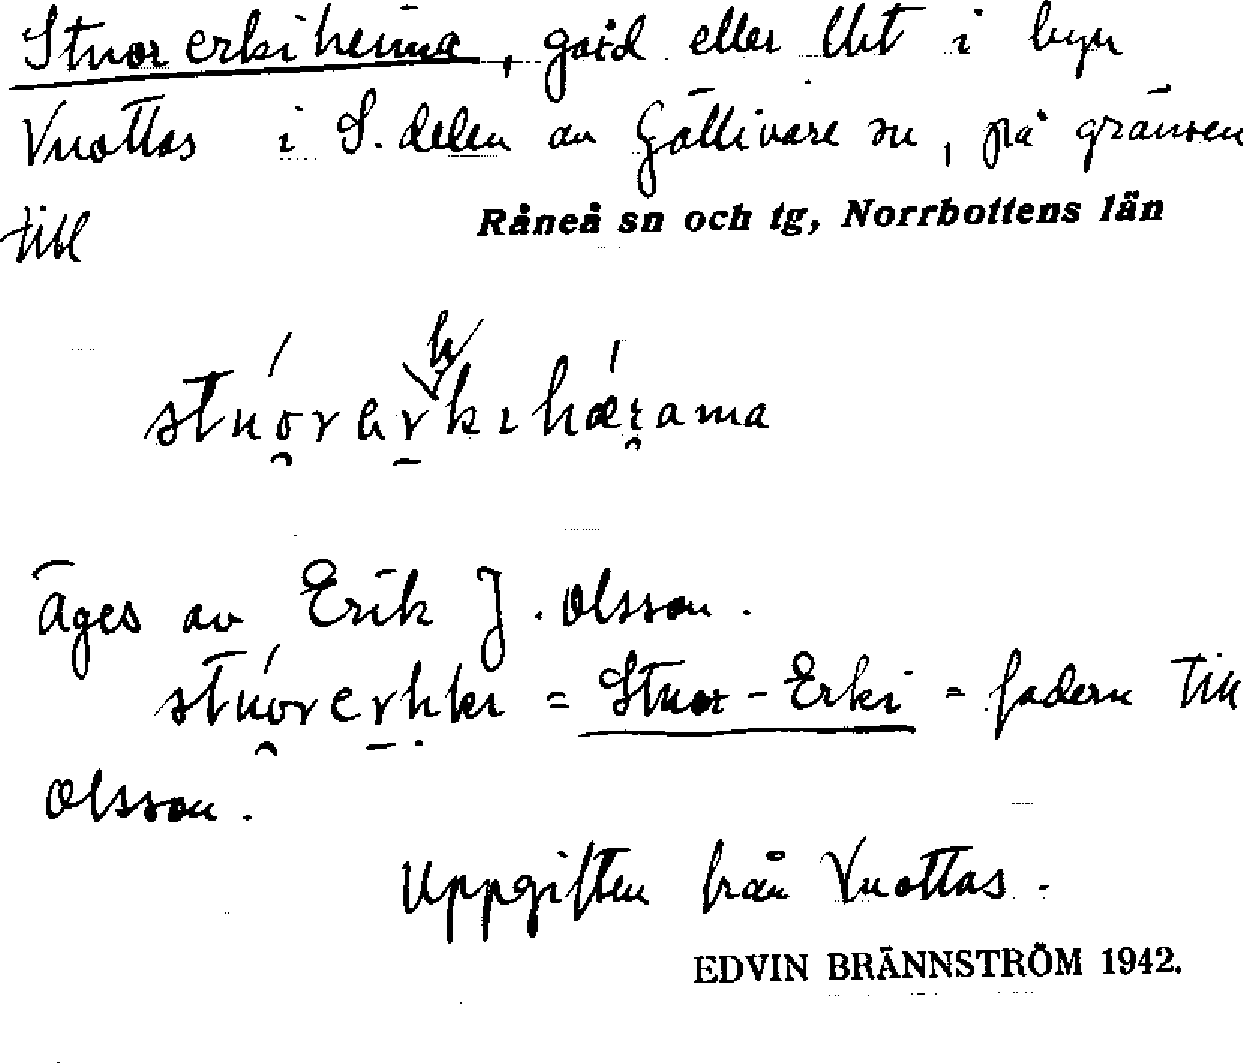 Stuor erkiheima, gård eller lht i byn
Vuottas i S. delen av Gällivare sn, på gränsen
till Råneå sn och tg, Norrbottens län
äges av Erik J. Olsson.
= Stuor-Erki = fadern till
Olsson.
Uppgiften från Vuottas.
EDVIN BRÄNNSTRÖM 1942.